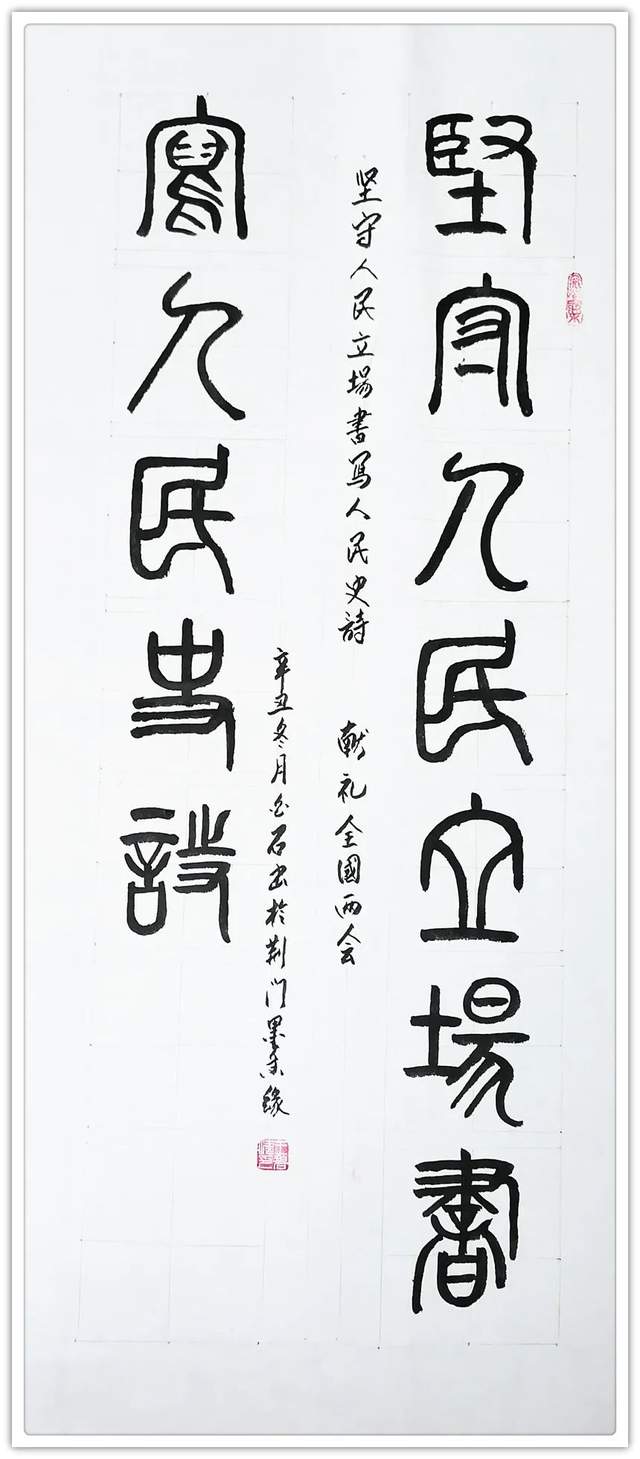 堅守人民立場書
寫人民史詩
坚守人民立場書写人民史詩 献礼全國两会
辛丑冬月白石出於荆门墨香缘